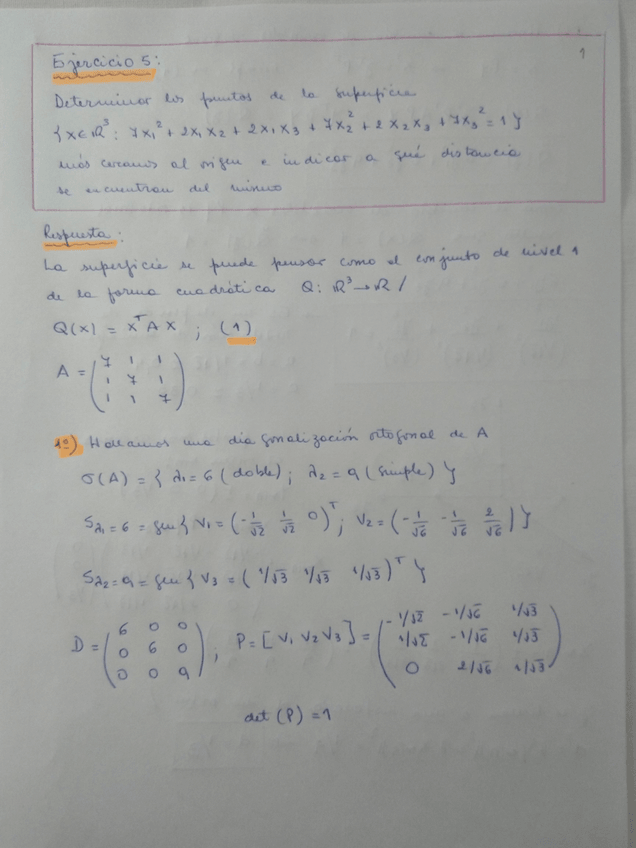 1
Ejercicio 5:
Determinar los puntos de la superficie
{ x ∈ ℝ³ : 7x₁² + 2x₁x₂ + 2x₁x₃ + 7x₂² + 2x₂x₃ + 7x₃² = 1 }
más cercanos al origen e indicar a qué distancia
se encuentran del mismo
Respuesta:
La superficie se puede pensar como el conjunto de nivel 1
de la forma cuadrática Q: ℝ³ → ℝ /
Q(x) = xᵀ A x ; (1)
A = ( 7 1 1
1 7 1
1 1 7 )
1º) Hallamos una diagonalización ortogonal de A
σ(A) = { λ₁ = 6 (doble) ; λ₂ = 9 (simple) }
Sλ₁=6 = gen { v₁ = (-1/√2 1/√2 0)ᵀ ; v₂ = (-1/√6 -1/√6 2/√6) }
Sλ₂=9 = gen { v₃ = ( 1/√3 1/√3 1/√3 )ᵀ }
D = ( 6 0 0 ; P = [ v₁ v₂ v₃ ] = ( -1/√2 -1/√6 1/√3
0 6 0 1/√2 -1/√6 1/√3
0 0 9 ) 0 2/√6 1/√3 )
det (P) = 1